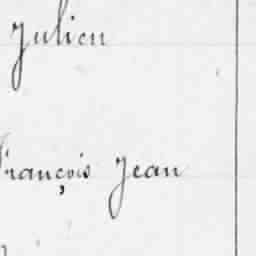 Julien
François Jean